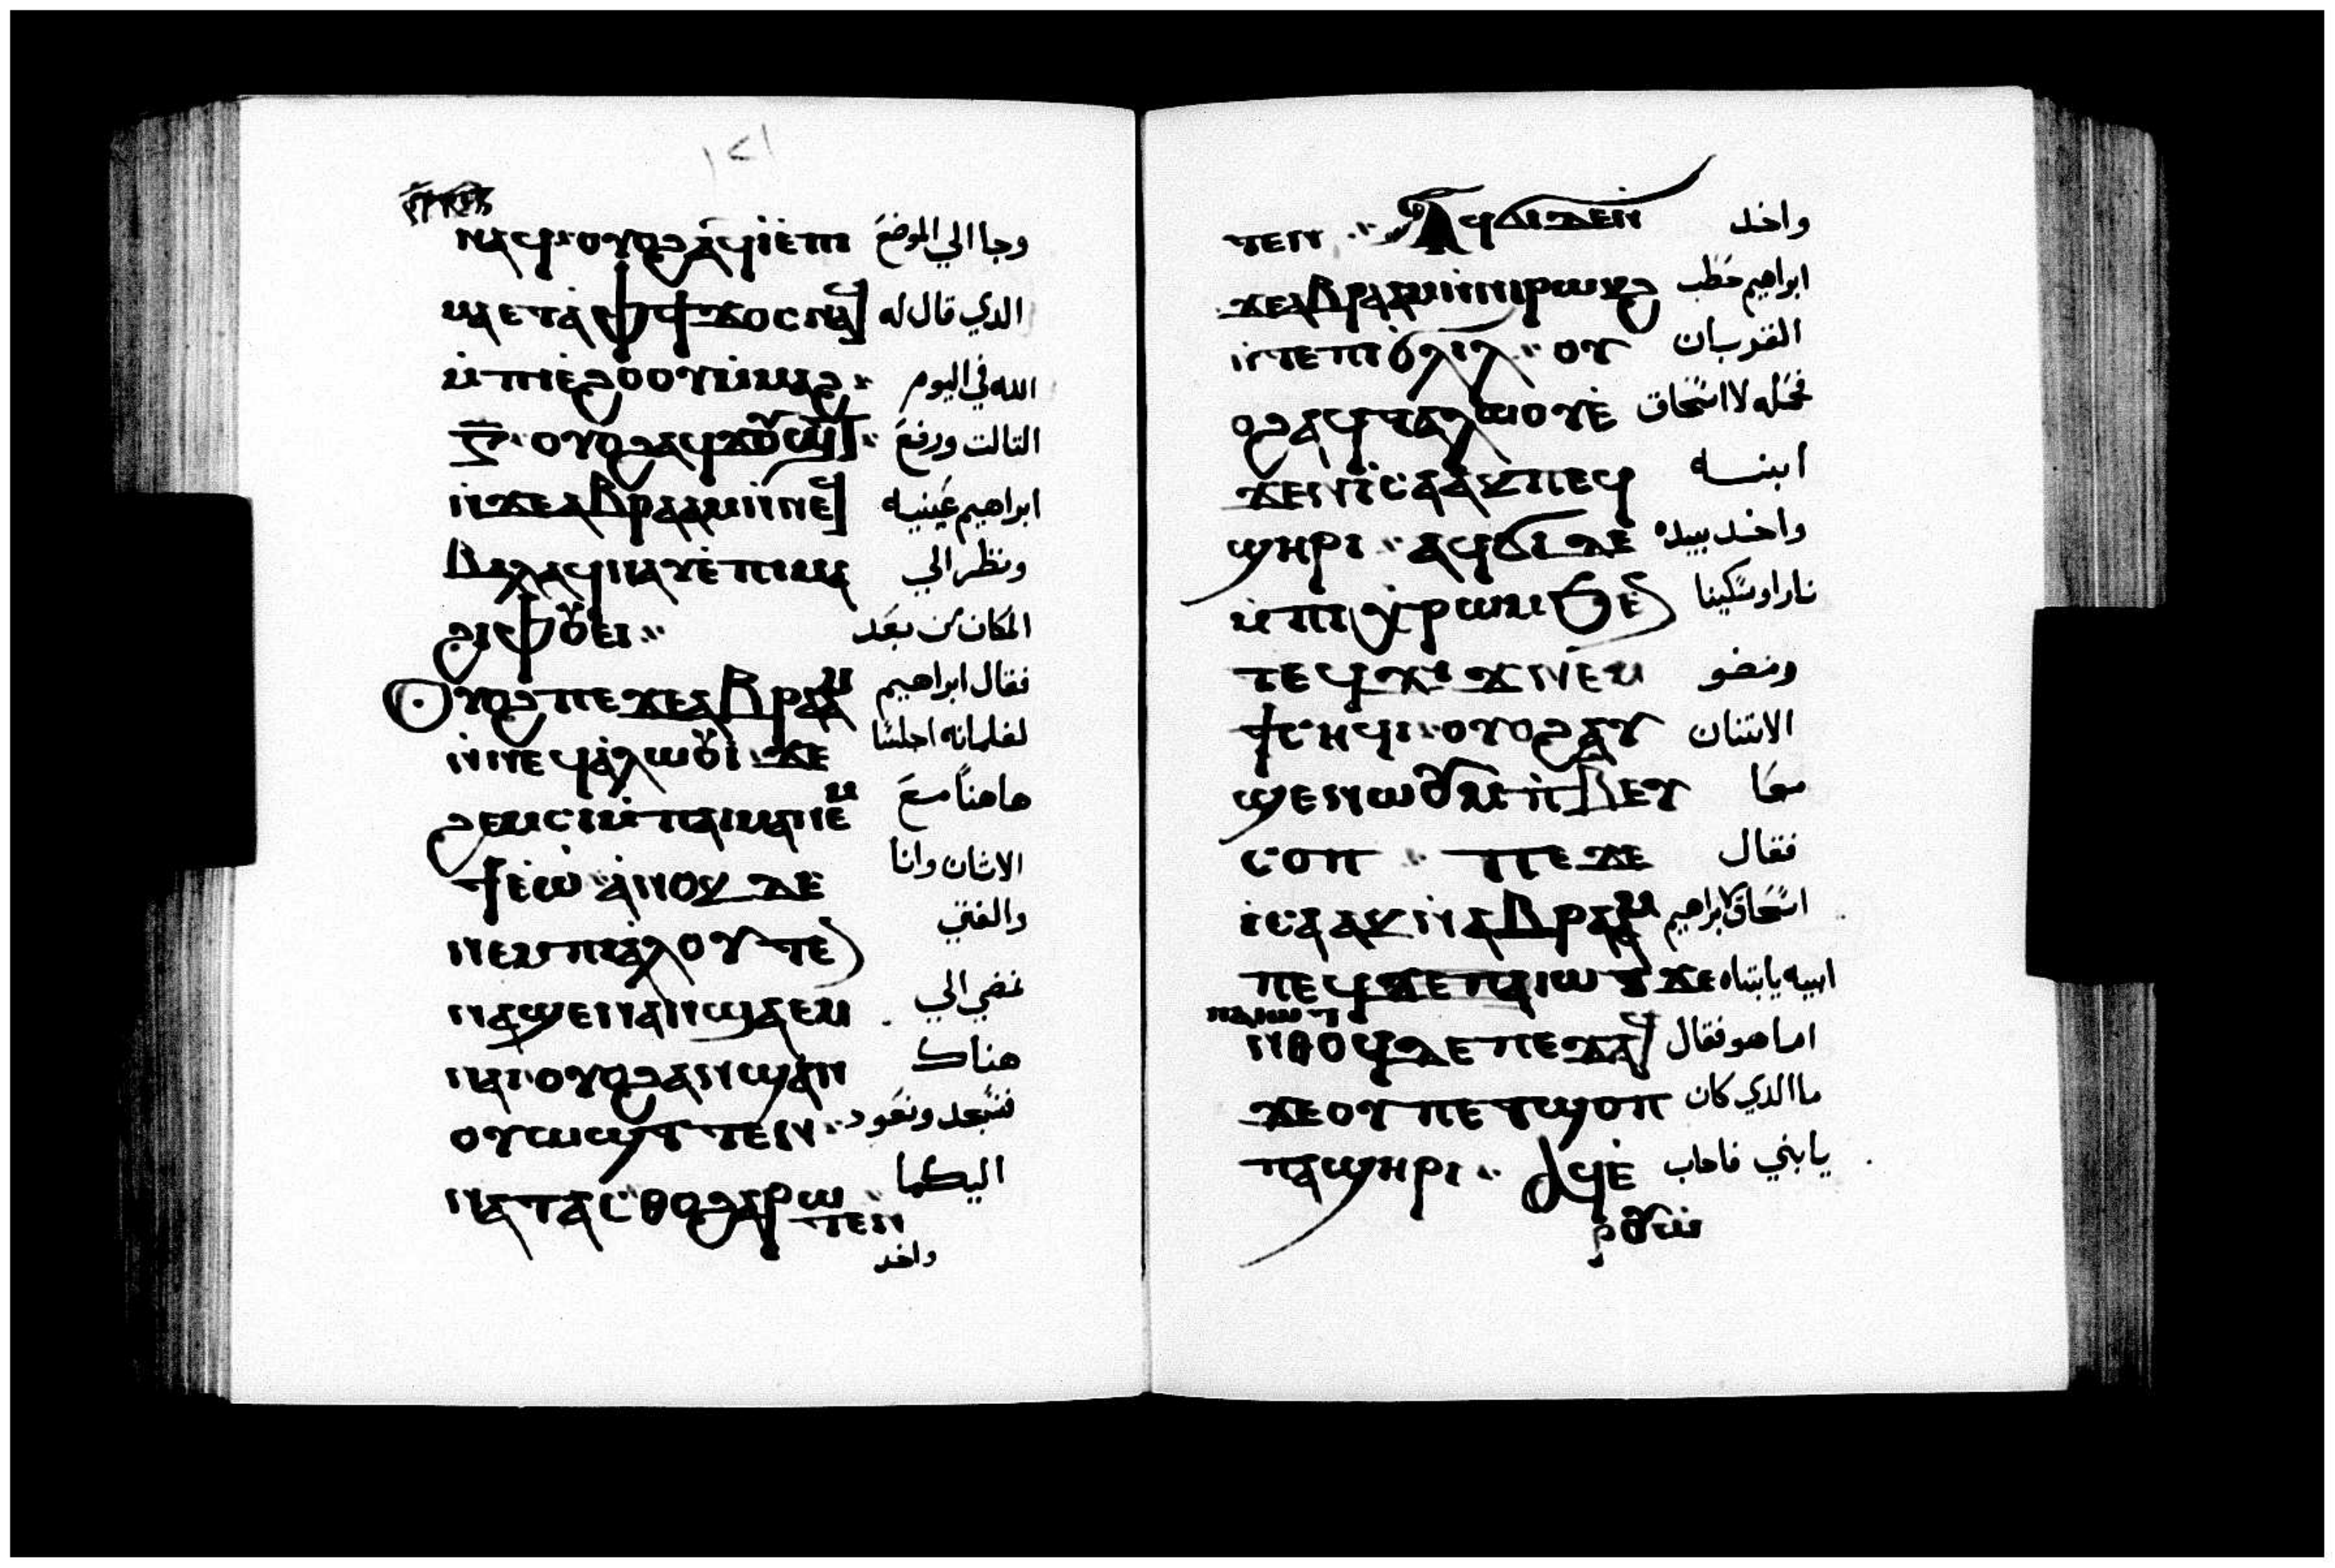 ١٢١
ⲛⲁϥ: ⲟⲩⲟϩ ⲁϥⲓ̀ ⲉ̀ⲡⲓ وجا الي الموضع
ⲙⲁ ⲉⲧⲁ̀ ⲫϯ ϫⲟⲥ ⲛⲁϥ الدي قال له
ⲙ̀ⲡⲓⲉ̀ϩⲟⲟⲩ ⲙ̀ⲙⲁϩ: الله في اليوم
ⲅ̅: ⲟⲩⲟϩ ⲁϥϫⲟⲩϣⲧ: التالت ورفع
ⲛ̀ϫⲉ ⲁⲃⲣⲁⲁⲙ ⲛ̀ⲛⲉϥ ابراهيم عينيه
ⲃⲁⲗ ⲁϥⲛⲁⲩ ⲉ̀ⲡⲓⲙⲁ ونظر الي
ϩⲓ ⲫⲟⲩⲉⲓ: المكان من بعد
ⲟⲩⲟϩ ⲡⲉϫⲉ ⲁⲃⲣⲁⲁⲙ فقال ابراهيم
ⲛ̀ⲛⲉϥⲁ̀ⲗⲱⲟⲩⲓ ϫⲉ لغلمانه اجلسا
ϩⲉⲙⲥⲓ ⲙ̀ⲡⲁⲓⲙⲁ ⲛⲉⲙ هاهنا مع
ϯⲉ̀ⲱ̀: ⲁ̀ⲛⲟⲕ ⲇⲉ الاتان وانا
ⲛⲉⲙ ⲡⲓⲁ̀ⲗⲟⲩ ⲧⲉ والفتي
ⲛⲁϣⲉⲛⲁⲛ ϣⲁ ⲉⲙ نمضي الي
ⲛⲁⲓ: ⲟⲩⲟϩ ⲁⲛϣⲁⲛ هناك
ⲟⲩⲱϣⲧ ⲧⲉⲛ: فنسجد ونعود
ⲛⲁⲧⲁⲥⲑⲟ ϩⲁⲣⲱ اليكما
ⲧⲉⲛ
واخد
ⲧⲉⲛ: ⲁϥϭⲓ ⲇⲉⲛ واخد
ϫⲉ ⲁⲃⲣⲁⲁⲙ ⲛ̀ⲛⲓⲣⲱⲕϩ ابراهيم حطب
ⲛ̀ⲧⲉ ⲡⲓϭⲗⲓⲗ: ⲟⲩ القربان
ⲟϩ ⲁϥⲧⲁⲗⲱⲟⲩ ⲉ̀ فحمله لااسحاق
ϫⲉⲛ ⲓⲥⲁⲁⲕ ⲡⲉϥ ابنه
ϣⲏⲣⲓ: ⲁϥϭⲓ ⲇⲉ واخد بيده
ⲙ̀ⲡⲓⲭⲣⲱⲙ ϧⲉⲛ نارا وسكينا
ⲧⲉϥϫⲓϫ ⲛⲉⲙ ومضو
ϯⲥⲏϥⲓ: ⲟⲩⲟϩ ⲁⲩ الاتنان
ϣⲉⲛⲱⲟⲩ ⲙ̀ⲡⲃⲉⲩ معا
ⲥⲟⲡ: ⲡⲉϫⲉ فقال
ⲓⲥⲁⲁⲕ ⲛ̀ⲁⲃⲣⲁⲁⲙ اسحاق لابراهيم
ⲡⲉϥ ϫⲉ ⲡⲁⲓⲱⲧ ϫⲉ ابيه يابتاه
ⲡⲁⲓⲱⲧ
ⲛⲑⲟϥ ⲇⲉ ⲡⲉϫⲁϥ اما هو فقال
ϫⲉ ⲟⲩ ⲡⲉⲧϣⲟⲡ ما الدي كان
ⲡⲁϣⲏⲣⲓ: ⲁϥⲉ̀ يابني فاجاب
ⲣⲟⲩⲱ̀